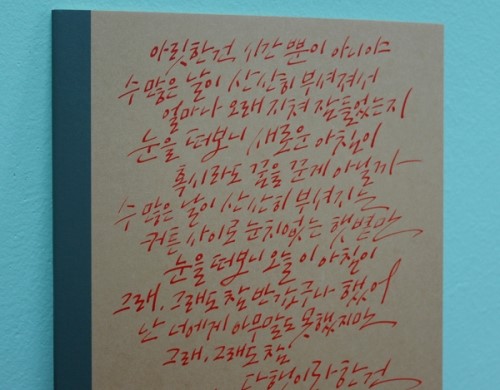 아릿한건 시간 뿐이 아니야
수 많은 날이 산산히 부셔져서
얼마나 오래 지쳐 잠들었는지
눈을 떠보니 새로운 아침이
혹시라도 꿈을 꾼게 아닐까
수 많은 날이 산산히 부셔지는
커튼 사이로 눈치없는 햇볕만
눈을 떠보니 오늘 이 아침이
그래, 그래도 참 반갑구나 했어
난 너에게 아무말도 못했지만
그래, 그래도 참
다행이랑 한건